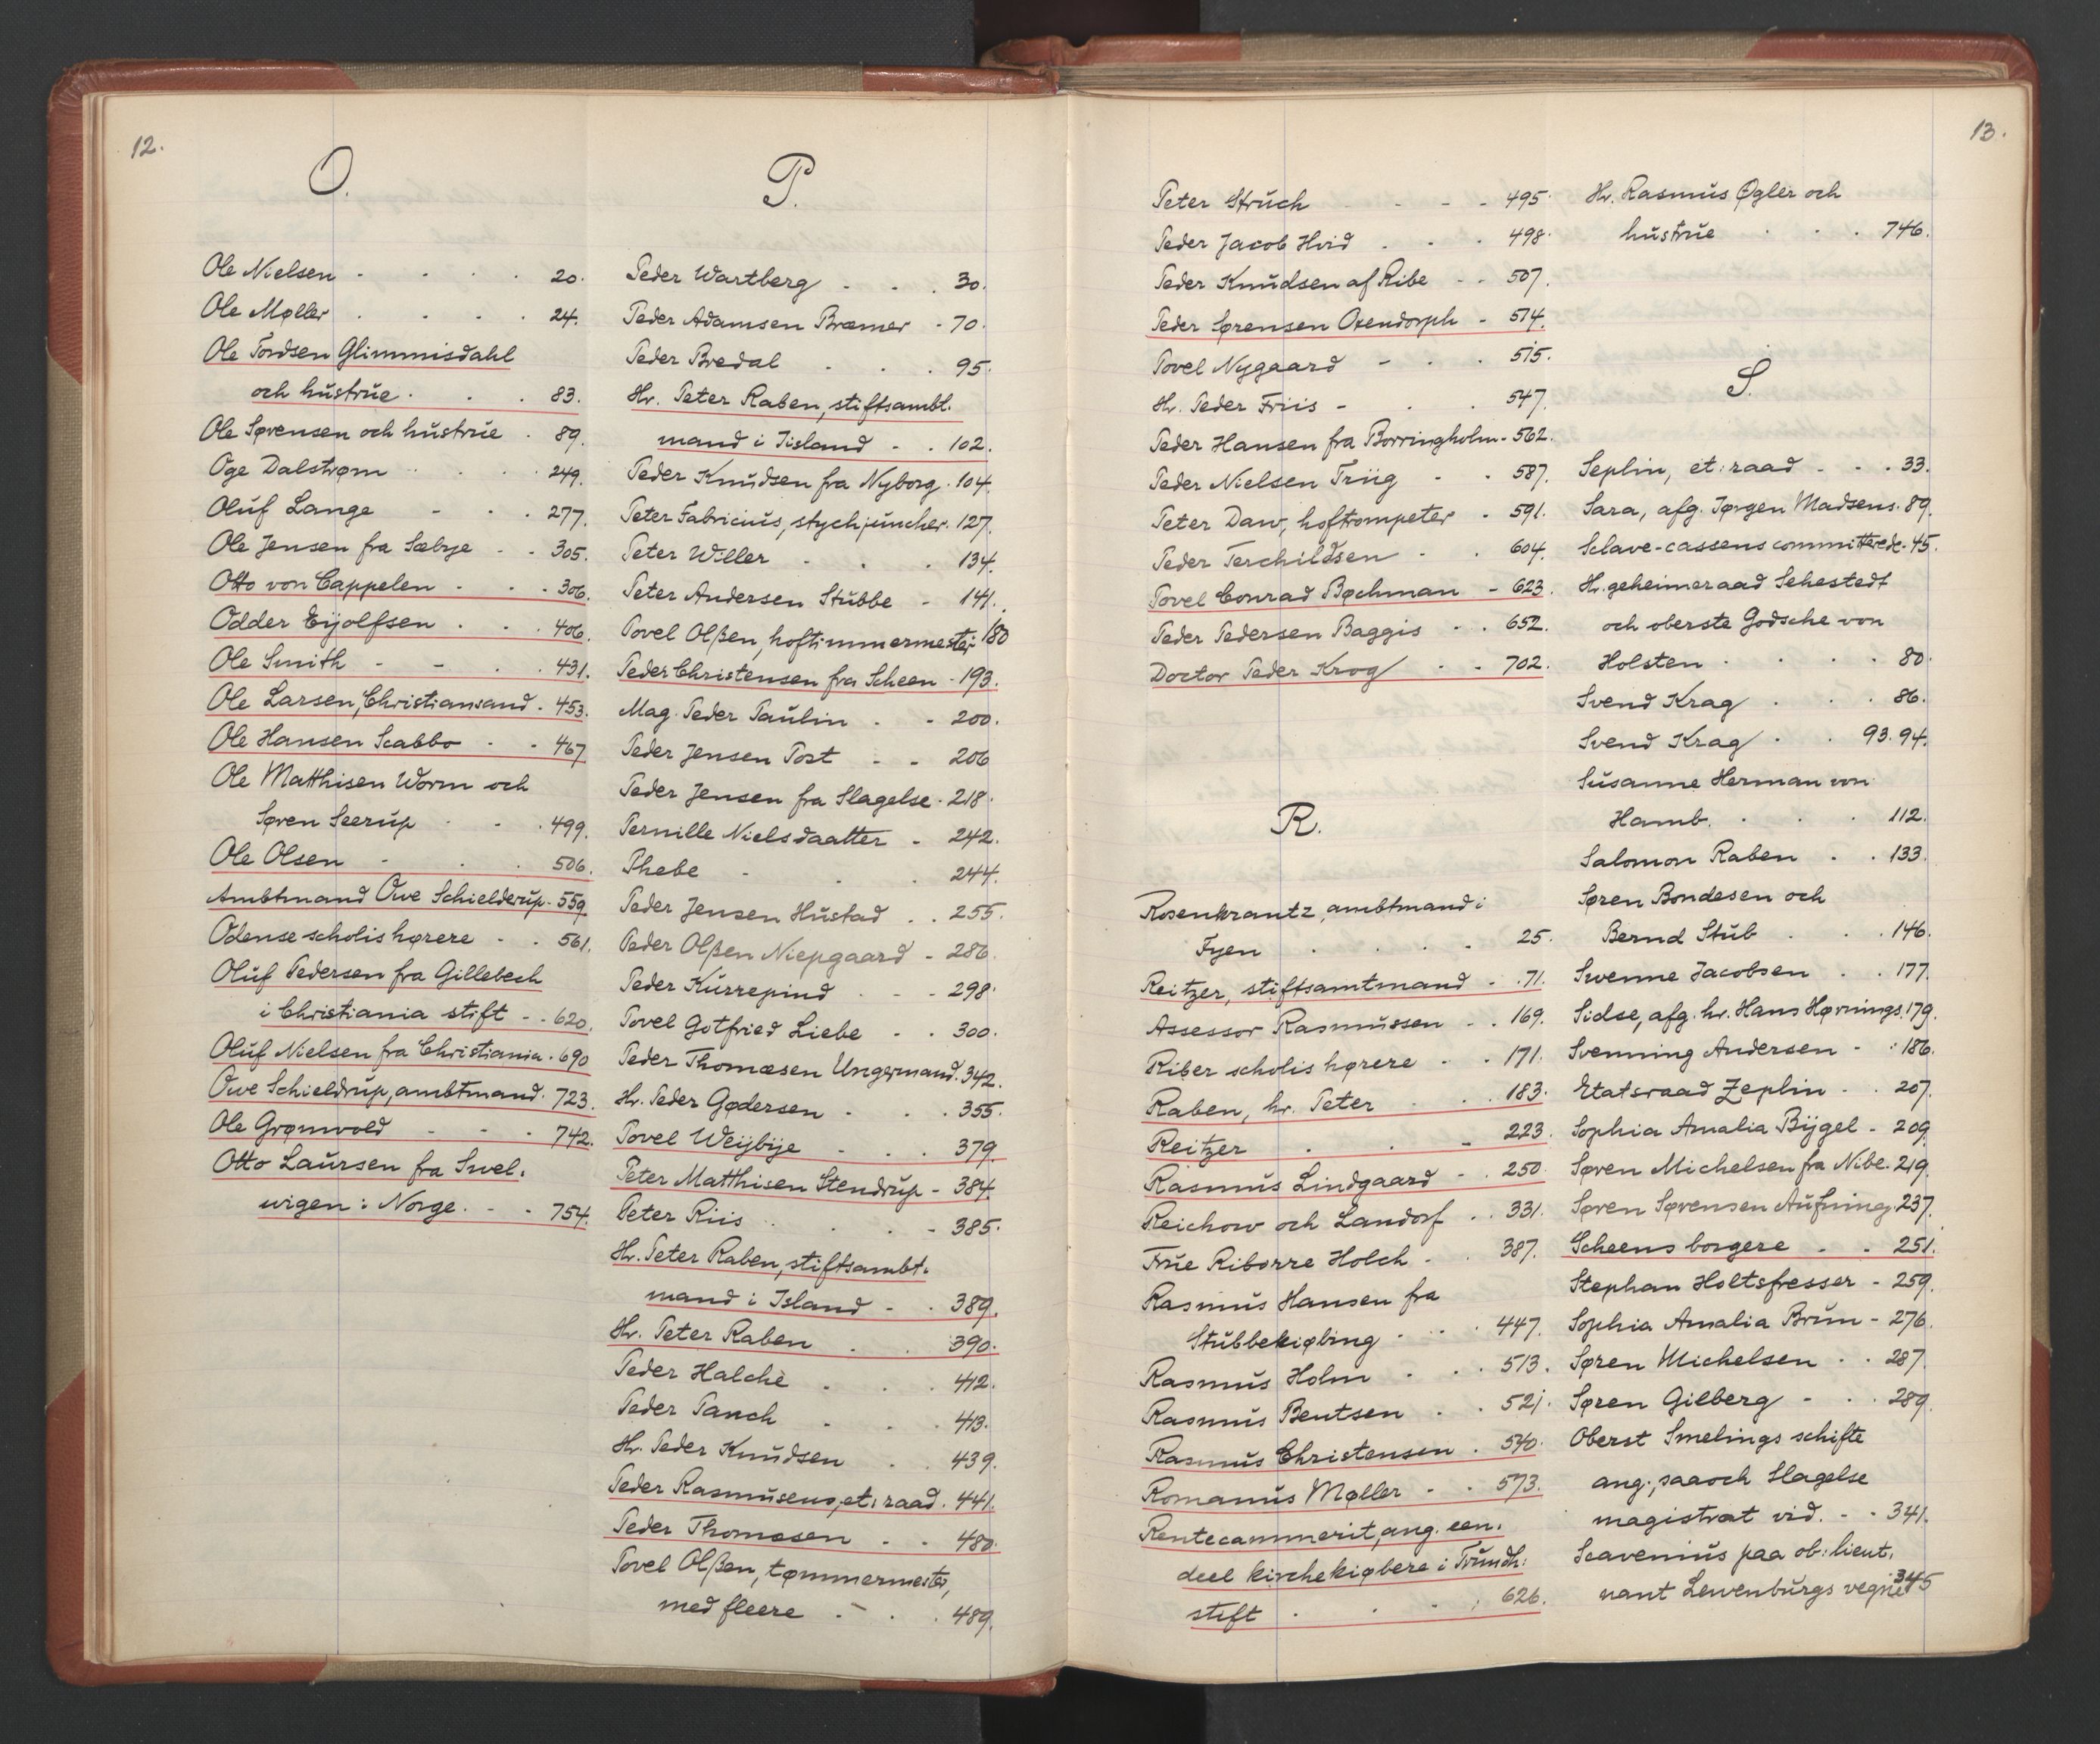 12.
O.
Ole Nielsen - - - - 20.
Ole Møller . . . . 24.
Ole Tordsen Glimmisdahl
och hustrue . . . 83.
Ole Sørensen och hustrue . 89.
Oge Dalstrøm . . . 249.
Oluf Lange - - . 277.
Ole Jensen fra Sæbye - - 305.
Otto von Cappelen - - - 306.
Odder Eijolfsen . . . 406.
Ole Smith - - . . 431.
Ole Larsen, Christiansand . 453.
Ole Hansen Scabbo - - 467
Ole Matthisen Worm och
Søren Seerup . - . 499.
Ole Olsen - . . 506.
Ambtmand Owe Schielderup - 559.
Odense scholis hørere - . 561.
Oluf Pedersen fra Gillebech
i Christiania stift - - 620.
Oluf Nielsen fra Christiania . 690
Owe Schieldrup, ambtmand . 723.
Ole Grønwold - - - 742.
Otto Laursen fra Swel-
wigen i Norge . - - 754.
P.
Peder Wartberg - - . 30.
Peder Adamsen Bræmer - 70.
Peder Bredal . . . 95.
Hr. Peter Raben, stiftsambt-
mand i Iisland - . 102.
Peder Knudsen fra Nyborg . 104.
Peter Fabricius, stychjuncher . 127.
Peter Willer - . . 134.
Peter Andersen Stubbe - 141.
Povel Olßen, hoftimmermester 180
Peder Christensen fra Scheen - 193.
Mag. Peder Paulin . - 200.
Peder Jensen Post - - 206
Peder Jensen fra Slagelse . 218.
Pernille Nielsdaatter - 242.
Phebe - . . 244.
Peder Jensen Hustad . . 255.
Peder Olßen Niepgaard - 286.
Peder Kurrepind . - - 298.
Povel Gotfried Liebe - . 300.
Peder Thomæsen Ungermand . 342.
Hr. Peder Gødersen - . . 355.
Povel Weijbije - . . 379.
Peter Matthisen Stendrup - 384.
Peter Riis . . . - 385.
Hr. Peter Raben, stiftsambt-
mand i Island - . 389.
Hr. Peter Raben . . 390.
Peder Halche . . . 412.
Peder Panch . . . 413.
Hr. Peder Knudsen . . 439.
Peder Rasmusens, et: raad . 441.
Peder Thomæsen . - 480.
Povel Olßen, tømmermester,
med fleere . - . . 489.
13.
Peter Struch - - - 495.
Peder Jacob Hvid . . . 498.
Peder Knudsen af Ribe - - 507.
Peder Sørensen Oxendorph - 514.
Povel Nygaard - . . 515.
Hr. Peder Friis - . . 547.
Peder Hansen fra Borringholm - 562.
Peder Nielsen Friig - . 587.
Peter Daw, hoftrompeter . 591.
Peder Terchildsen - . 604.
Povel Conrad Bøchman - 623.
Peder Pedersen Baggis - . 652.
Doctor Peder Krog - - 702.
R.
Rosenkrantz, ambtmand i
Fyen . . . . 25.
Reitzer, stiftsamtmand - . 71.
Assessor Rasmussen - . 169.
Riber scholis hørere - . 171.
Raben, hr. Peter . . . 183.
Reitzer . . - 223.
Rasmus Lindgaard - . 250.
Reichow och Landorf . . 331.
Frue Riborre Holch - . 387.
Rasmus Hansen fra
Stubbekiøbing - . . 447.
Rasmus Holm . . . 513.
Rasmus Bentsen . . 521.
Rasmus Christensen . 540.
Romanus Møller - . 573.
Rentecammerit, ang. een-
deel kirchekiøbere i Trundh:
stift . . . . 626.
Hr. Rasmus Øgler och
hustrue . . . 746.
S.
Seplin, et: raad - - . 33.
Sara, afg. Jørgen Madsens . 89.
Sclave-cassens committerede . 45.
Hr. geheimeraad Sehestedt
och oberste Godsche von
Holsten . . . . 80.
Svend Krag . . . 86.
Svend Krag . . 93. 94.
Susanne Herman von
Hamb. . . . 112.
Salomon Raben . . 133.
Søren Bondesen och
Bernd Stub . . . 146.
Swenne Jacobsen . . 177.
Sidse, afg. hr. Hans Hørnings . 179.
Svenning Andersen - . 186.
Etatsraad Zeplin - . 207.
Sophia Amalia Bijgel - 209.
Søren Michelsen fra Nibe . 219.
Søren Sørensen Aufning . 237.
Scheens borgere - . 251.
Stephan Holtsfresser - 259.
Sophia Amalia Brun - 276.
Søren Michelsen . . 287.
Søren Gilberg - . . 289.
Oberst Smelings schifte
ang., saaoch Slagelse
magistrat vid. - - 341.
Scavenius paa ob: lieut-
nant Lewenburgs vegne 345